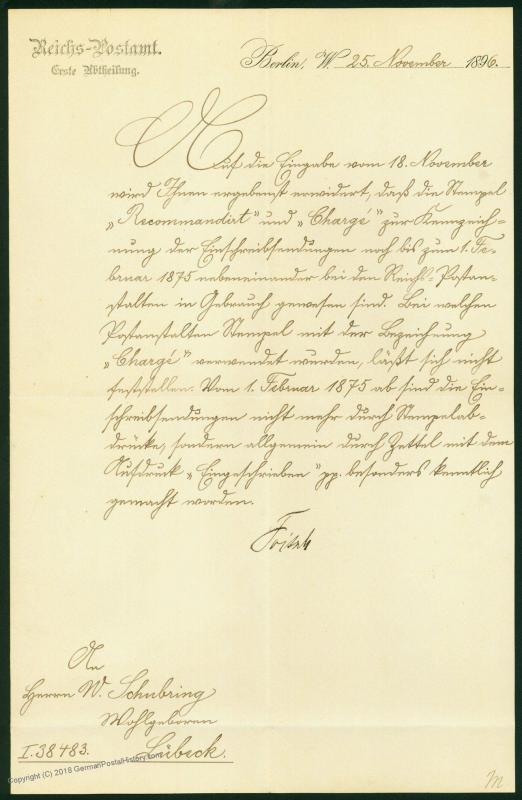 Reichs-Postamt.
Erste Abtheilung.
Berlin, W. 25. November 1896.
Auf die Eingabe vom 18. November
wird Ihnen ergebenst erwidert, daß die Stempel
„Recommandirt" und „Chargé" zur Kennzeich-
nung der Einschreibsendungen noch bis zum 1. Fe-
bruar 1875 nebeneinander bei den Reichs-Postan-
stalten in Gebrauch gewesen sind. Bei welchen
Postanstalten Stempel mit der Bezeichnung
„Chargé" verwendet wurden, läßt sich nicht
feststellen. Vom 1. Februar 1875 ab sind die Ein-
schreibsendungen nicht mehr durch Stempelab-
drücke, sondern allgemein durch Zettel mit dem
Aufdruck „Eingeschrieben" pp. besonders kenntlich
gemacht worden.
An
Herrn W. Schubring
Wohlgeboren
I. 38483.
Lübeck.
Copyright (C) 2018 GermanPostalHistory.com